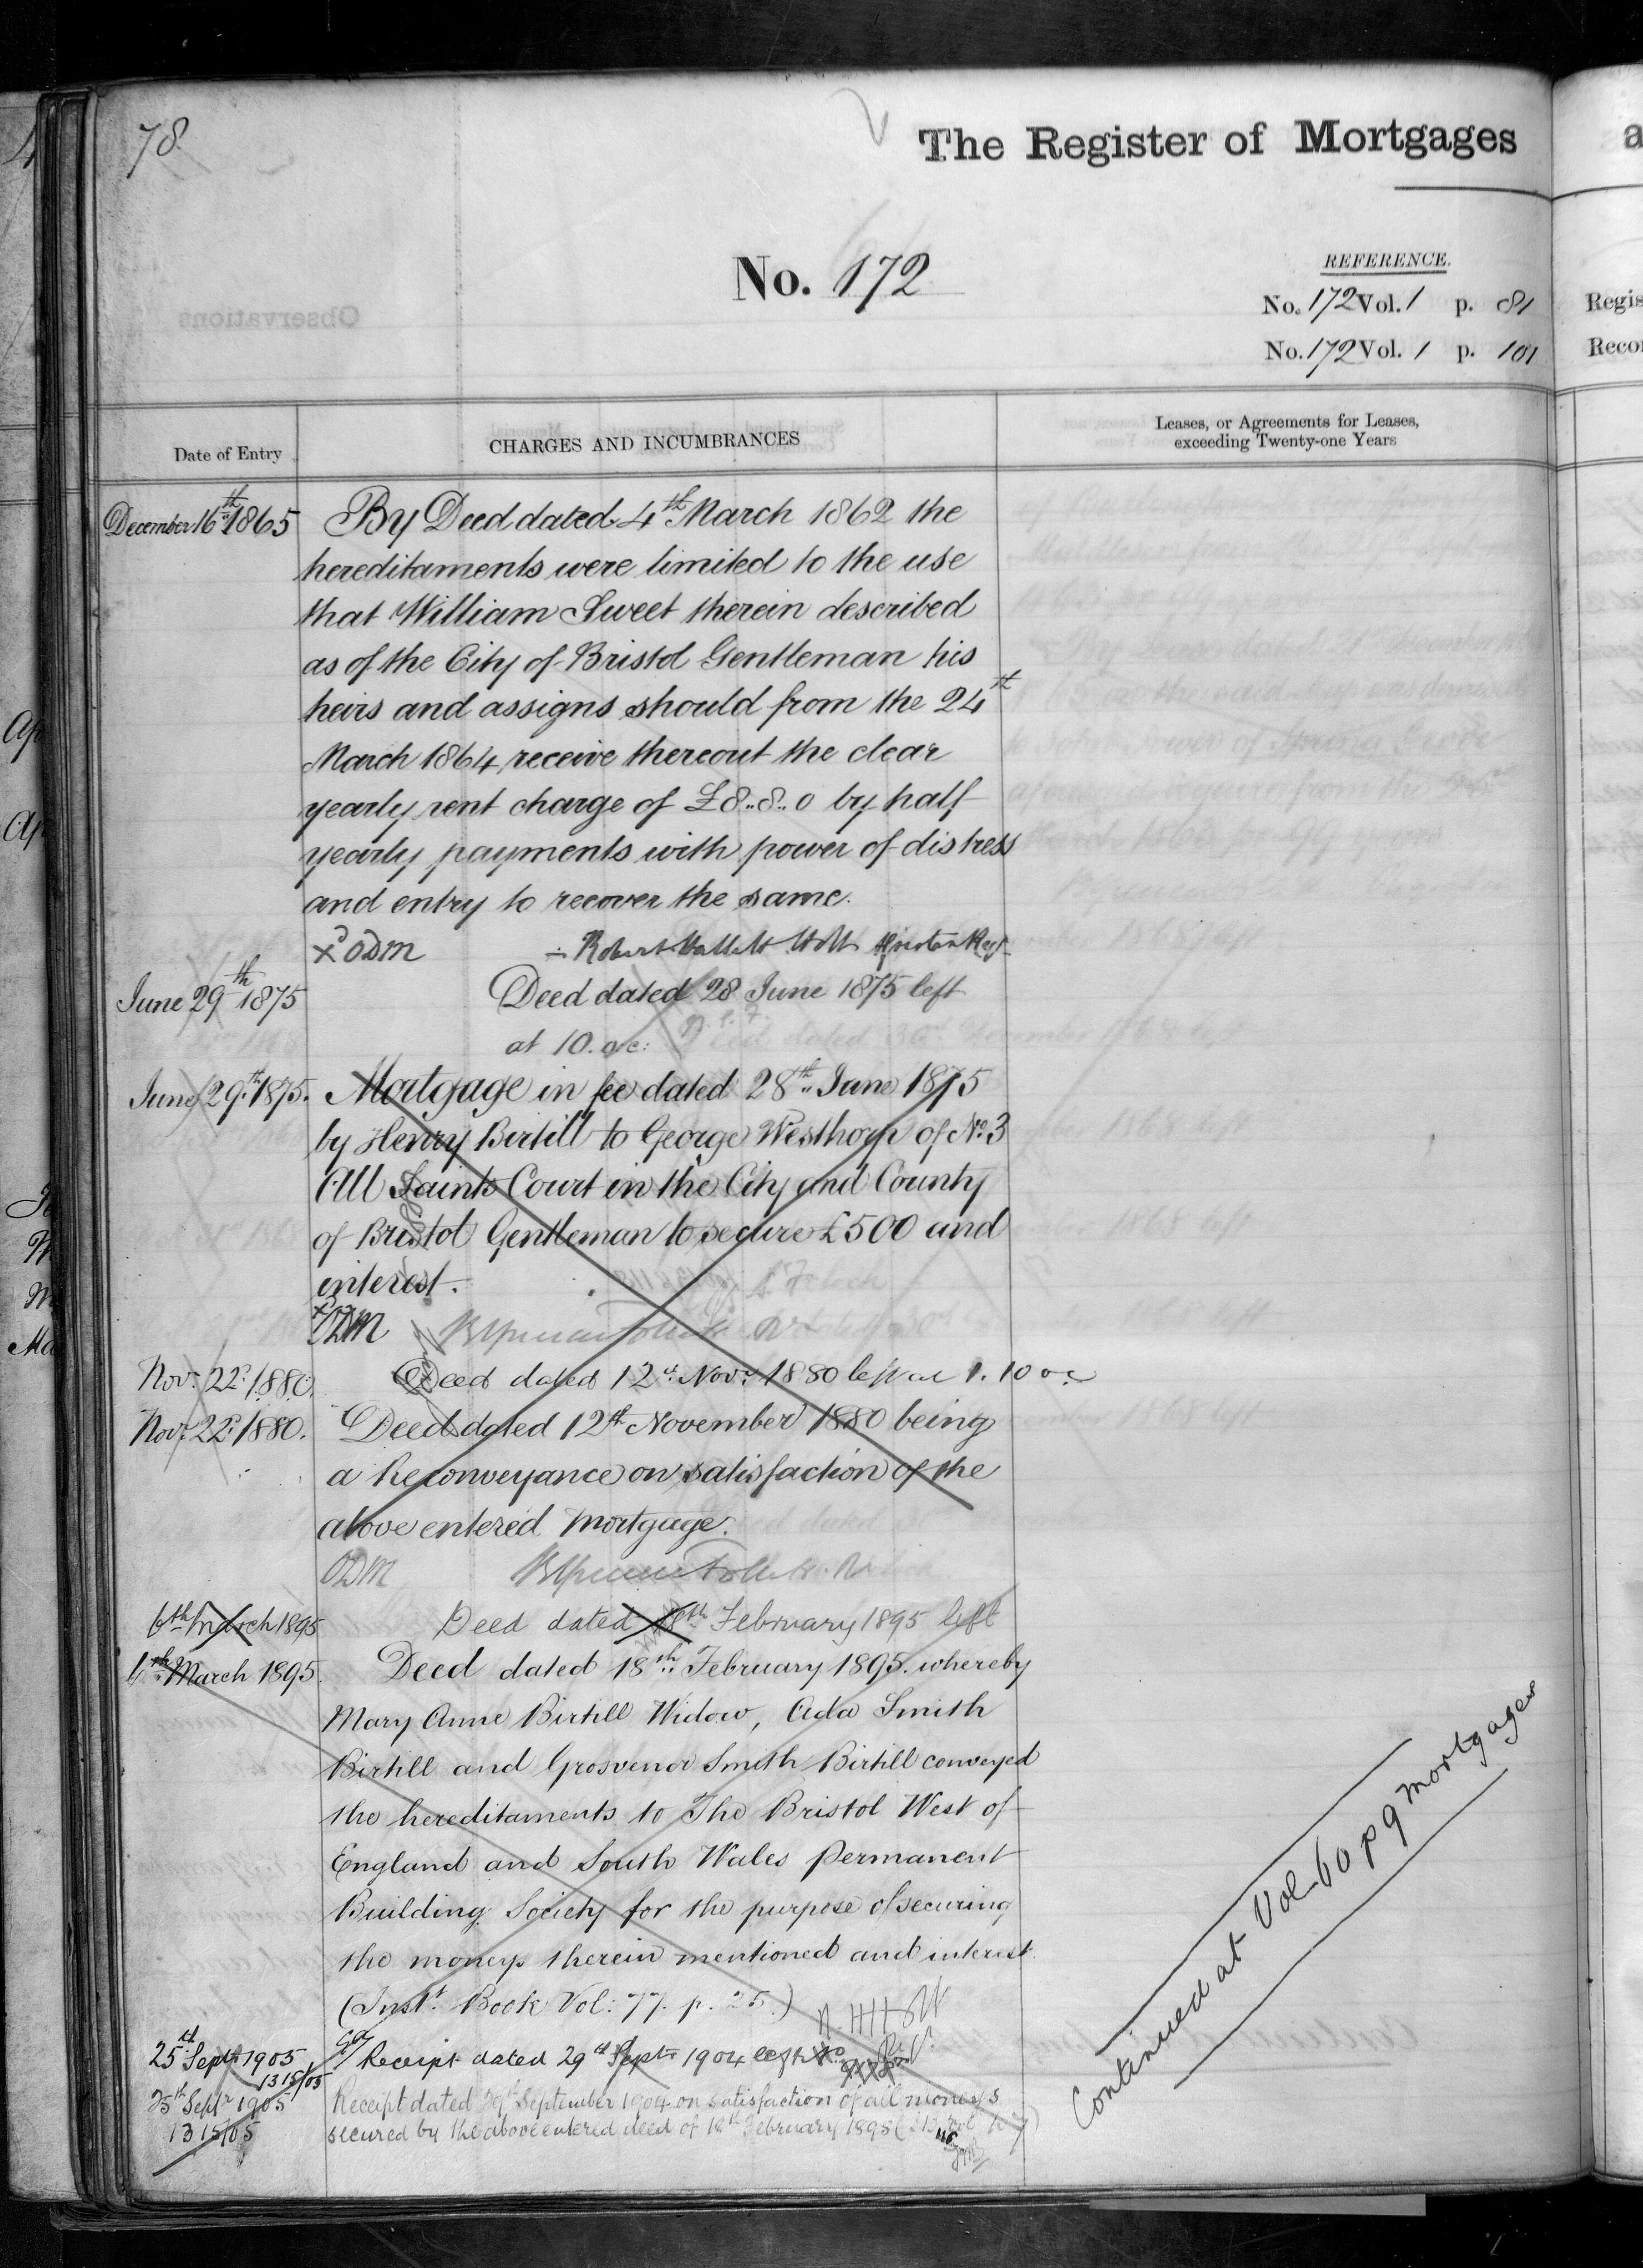 78
The Register of Mortgages
No. 172
REFERENCE.
No. 172 Vol. 1 p. 81
No. 172 Vol. 1 p. 101
Observations
Date of Entry
CHARGES AND INCUMBRANCES
Leases, or Agreements for Leases,
exceeding Twenty-one Years
December 16th 1865 By Deed dated 4th March 1862 the
hereditaments were limited to the use
that William Sweet therein described
as of the City of Bristol Gentleman his
heirs and assigns should from the 24th
March 1864 receive thereout the clear
yearly rent charge of £8..8..0 by half
yearly payments with power of distress
and entry to recover the same.
ODM Robert Hallett Holt
June 29th 1875 Deed dated 28 June 1875 left
at 10. oc:
June 29th 1875. Mortgage in fee dated 28th June 1875
by Henry Birtill to George Westhorp of No. 3
All Saints Court in the City and County
of Bristol Gentleman to secure £500 and
interest.
ODM
Nov: 22d: 1880. Deed dated 12th Novr 1880 left at 1.10 oc
Nov: 22d: 1880. Deed dated 12th November 1880 being
a Reconveyance on satisfaction of the
above entered Mortgage.
ODM
6th March 1895 Deed dated 18th February 1895 left
6th March 1895. Deed dated 18th February 1895. whereby
Mary Anne Birtill Widow, Ada Smith
Birtill and Grosvenor Smith Birtill conveyed
the hereditaments to The Bristol West of
England and South Wales Permanent
Building Society for the purpose of securing
the moneys therein mentioned and interest.
(Inst. Book Vol: 77. p. 25.)
25th Septr 1905 Receipt dated 29th Septr 1904 left
1315/05
25th Septr 1905 Receipt dated 29th September 1904 on satisfaction of all moneys
1315/05 secured by the above entered deed of 18th February 1895
Continued at Vol. 60 p 9 Mortgages